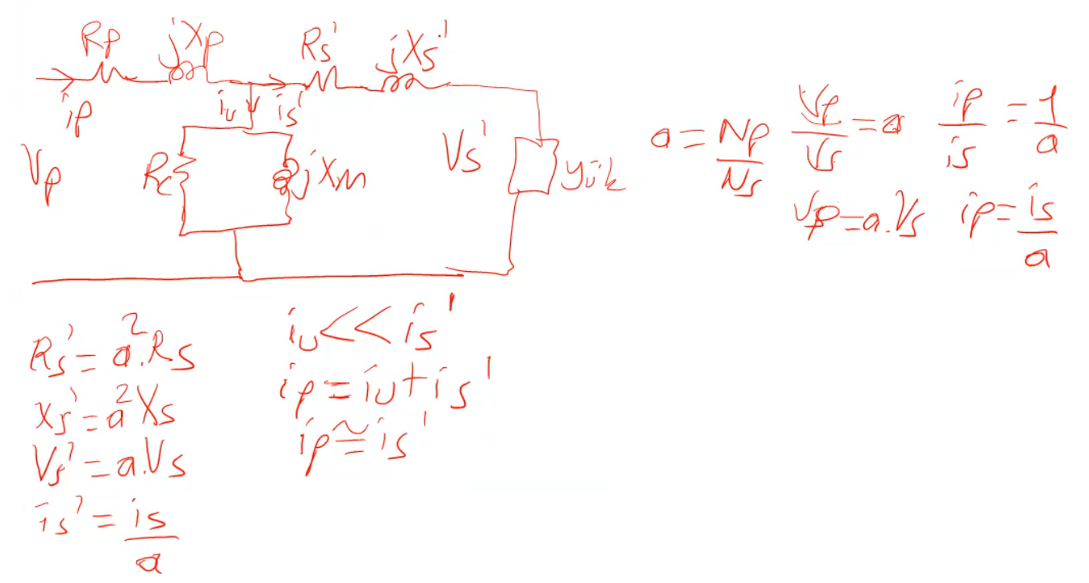 Rp jXp Rs' jXs'
ip iu is'
Vp Rc jXm Vs' yük
a = Np/Ns Vp/Vs = a ip/is = 1/a
Vp = a.Vs ip = is/a
Rs' = a².Rs
Xs' = a²Xs
Vs' = a.Vs
is' = is/a
iu << is'
ip = iu + is'
ip ≅ is'